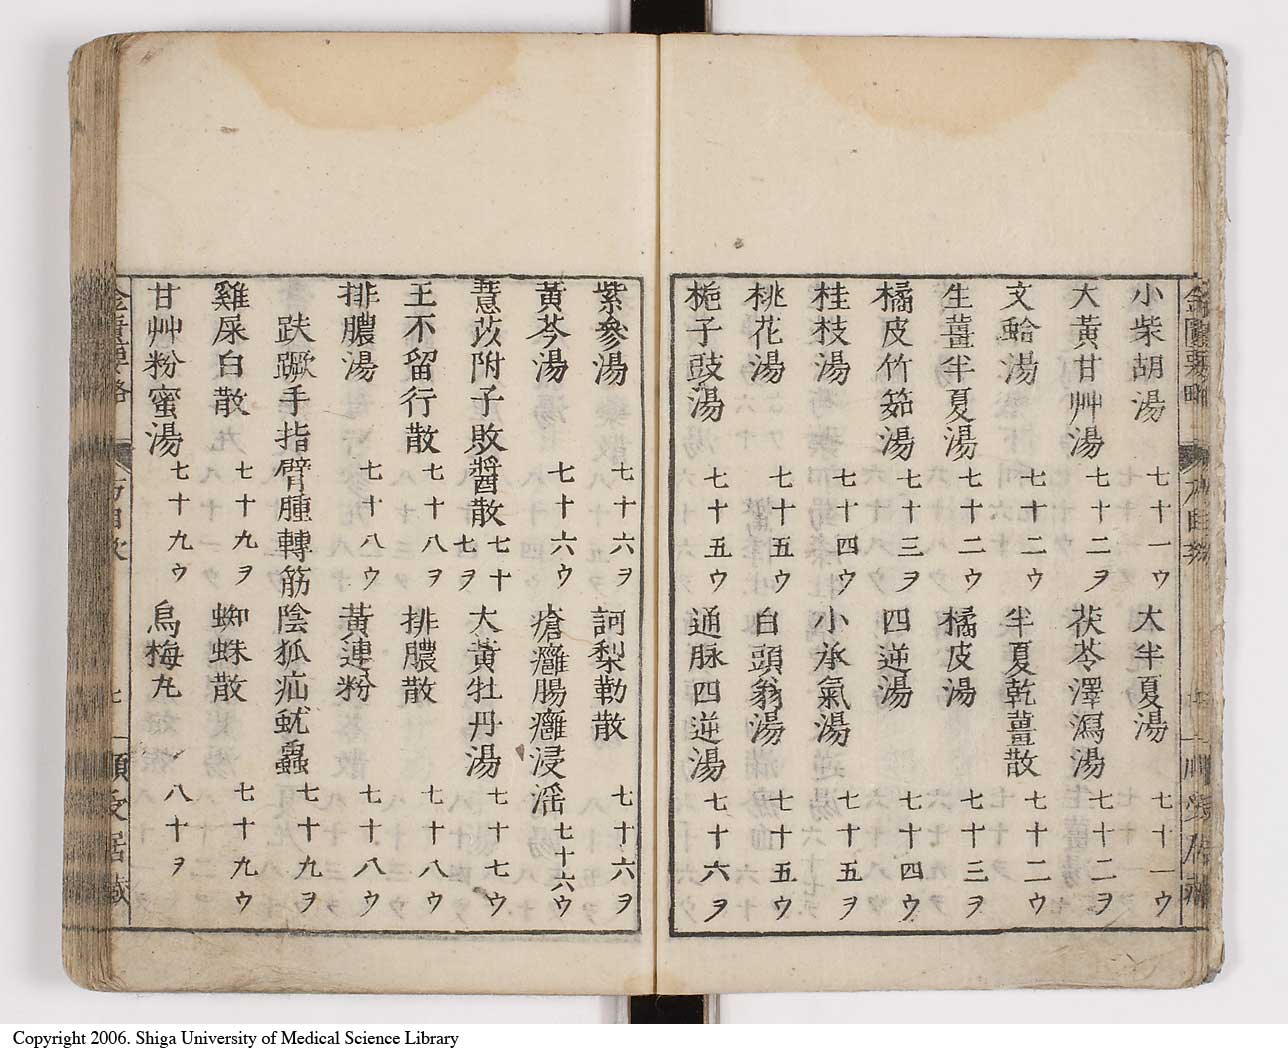 小柴胡湯 七十一ウ 大半夏湯 七十一ウ
大黃甘艸湯 七十二ヲ 茯苓澤瀉湯 七十二ヲ
文蛤湯 七十二ウ 半夏乾薑散 七十二ウ
生薑半夏湯 七十二ウ 橘皮湯 七十三ヲ
橘皮竹茹湯 七十三ヲ 四逆湯 七十四ウ
桂枝湯 七十四ウ 小承氣湯 七十五ヲ
桃花湯 七十五ウ 白頭翁湯 七十五ウ
梔子豉湯 七十五ウ 通脉四逆湯 七十六ヲ
紫參湯 七十六ヲ 訶梨勒散 七十六ヲ
黃芩湯 七十六ウ 瘡癰腸癰浸淫 七十六ウ
薏苡附子敗醬散 七十七ヲ 大黃牡丹湯 七十七ウ
王不留行散 七十八ヲ 排膿散 七十八ウ
排膿湯 七十八ウ 黃連粉 七十八ウ
趺蹶手指臂腫轉筋陰狐疝蚘蟲 七十九ヲ
雞屎白散 七十九ヲ 蜘蛛散 七十九ウ
甘艸粉蜜湯 七十九ウ 烏梅丸 八十ヲ
金匱要略
Copyright 2006. Shiga University of Medical Science Library